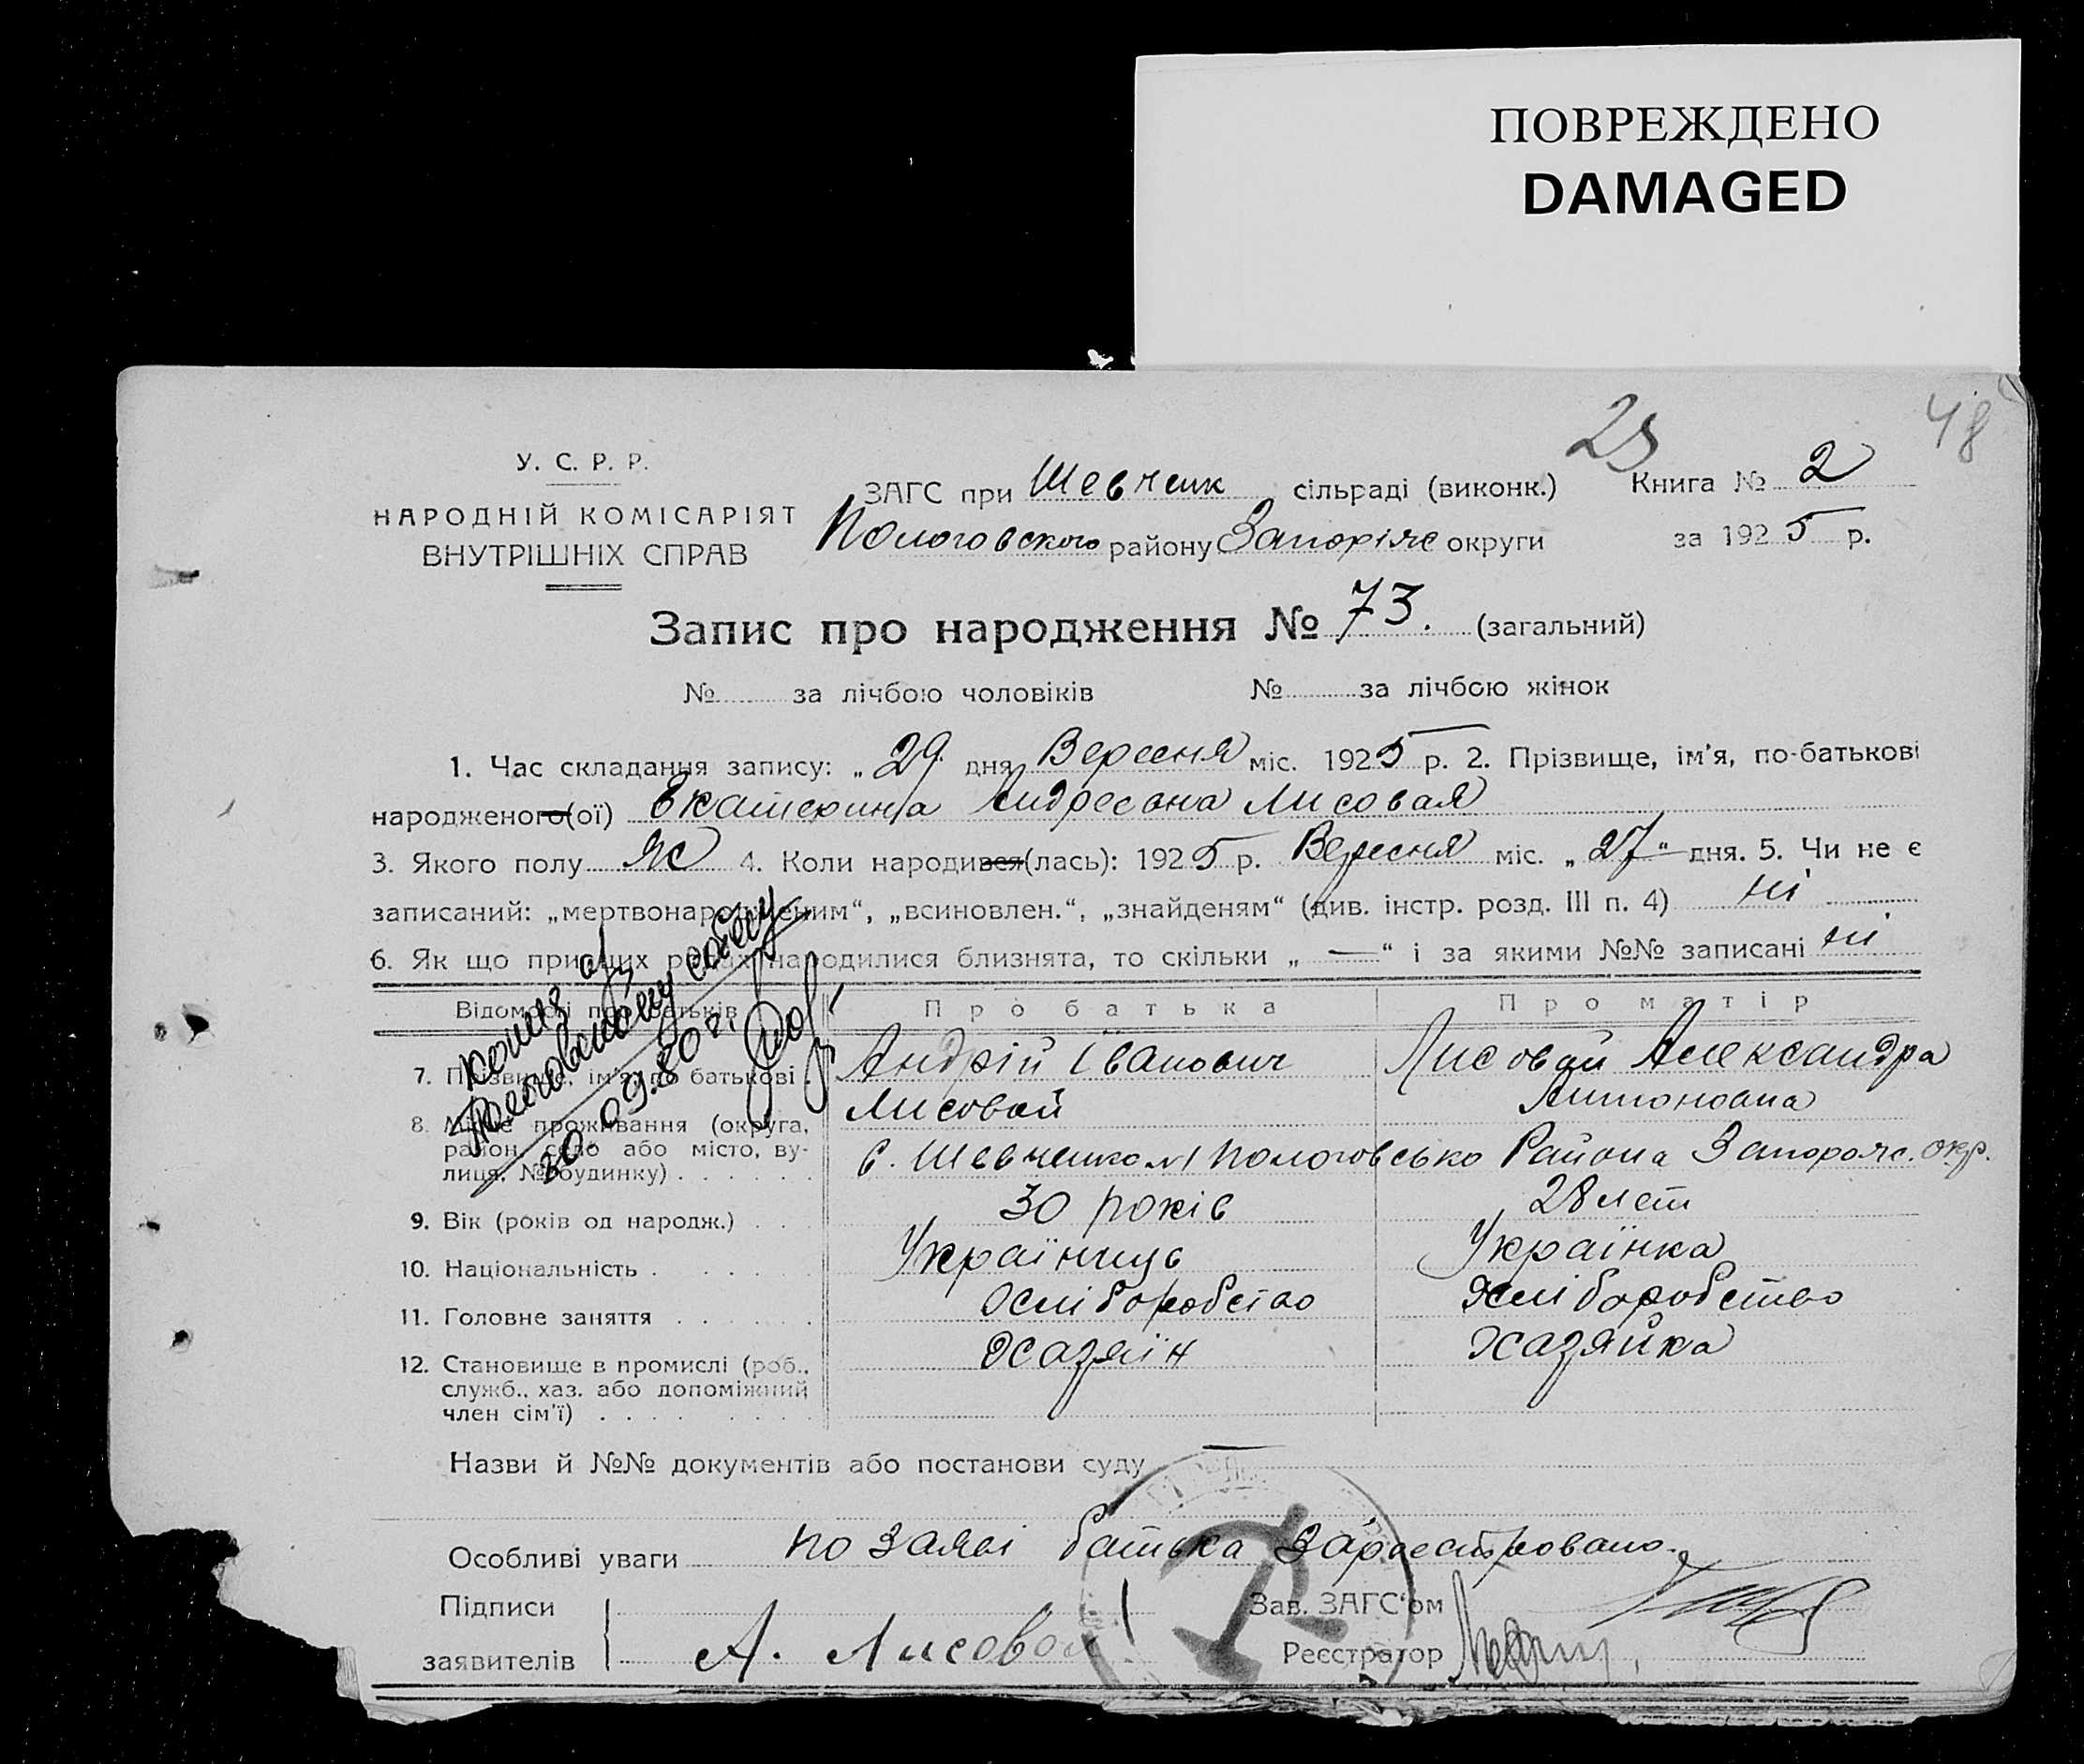 ПОВРЕЖДЕНО
DAMAGED
48
У. С. Р. Р.
НАРОДНІЙ КОМІСАРІЯТ
ВНУТРІШНІХ СПРАВ
ЗАГС при Шевченк сільраді (виконк.) Книга № 2
Пологовского району Запоріж округи за 1925 р.
Запис про народження № 73. (загальний)
№ за лічбою чоловіків № за лічбою жінок
1. Час складання запису: „29 дня Вересня міс. 1925 р. 2. Прізвище, ім'я, по-батькові
народженого(ої) Екатерина Андреевна Лисовая
3. Якого полу Ж 4. Коли народився(лась): 1925 р. Вересня міс. „27“ дня. 5. Чи не є
записаний: „мертвонародженим“, „всиновлен.“, „знайденям“ (див. інстр. розд. III п. 4) ні
6. Як що при цих родах народилися близнята, то скільки „ — “ і за якими №№ записані ні
копия
30.09.80 г.
Відомості про батьків Про батька Про матір
7. Прізвище, ім'я, по батькові . Андрій Іванович Лисовая Александра
Лисовой Антоновна
8. Місце проживання (округа,
район, село або місто, ву-
лиця, № будинку) . . . . . . с. Шевченково Пологовсько Района Запорож. окр.
9. Вік (років од народж.) . . . 30 років 28 лет
10. Національність . . . . . Українець Українка
11. Головне заняття . . . . . . Хліборобство Хліборобство
12. Становище в промислі (роб.,
служб., хаз. або допоміжний
член сім'ї) . . . . . . . . . Хазяїн Хазяйка
Назви й №№ документів або постанови суду —
Особливі уваги по заяві батька Зареєстровано.
Підписи
заявителів А. Лисовой
Зав. ЗАГС'ом
Реєстратор